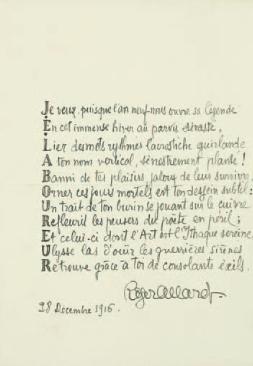 Je veux, puisque l'an neuf nous ouvre sa légende
En cet immense hiver au parvis dévasté,
Lier des mots rythmés l'acrostiche guirlande
A ton nom vertical, sénestrement planté !
Banni de tes plaisirs jaloux de leur survivre,
Orner ces jours mortels est ton dessein subtil :
Un trait de ton burin se jouant sur le cuivre
Refleurit les pensers du poète en péril ;
Et celui-ci dont l'Art est l'Ithaque sereine
Ulysse las d'ouïr les guerrières sirènes
Retrouve grâce à toi de consolants éxils.
Roger Allard
28 Décembre 1916.